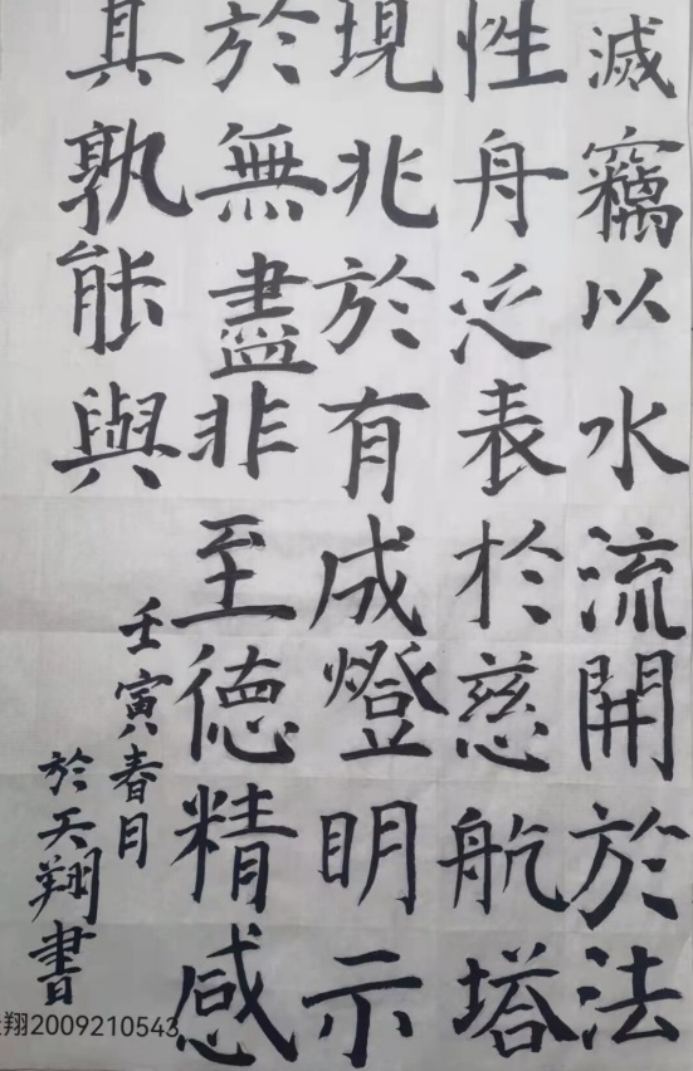 滅竊以水流開於法
性舟泛表於慈航塔
現兆於有成燈明示
於無盡非至德精感
其孰能與
壬寅春月
於天翔書
翔2009210543